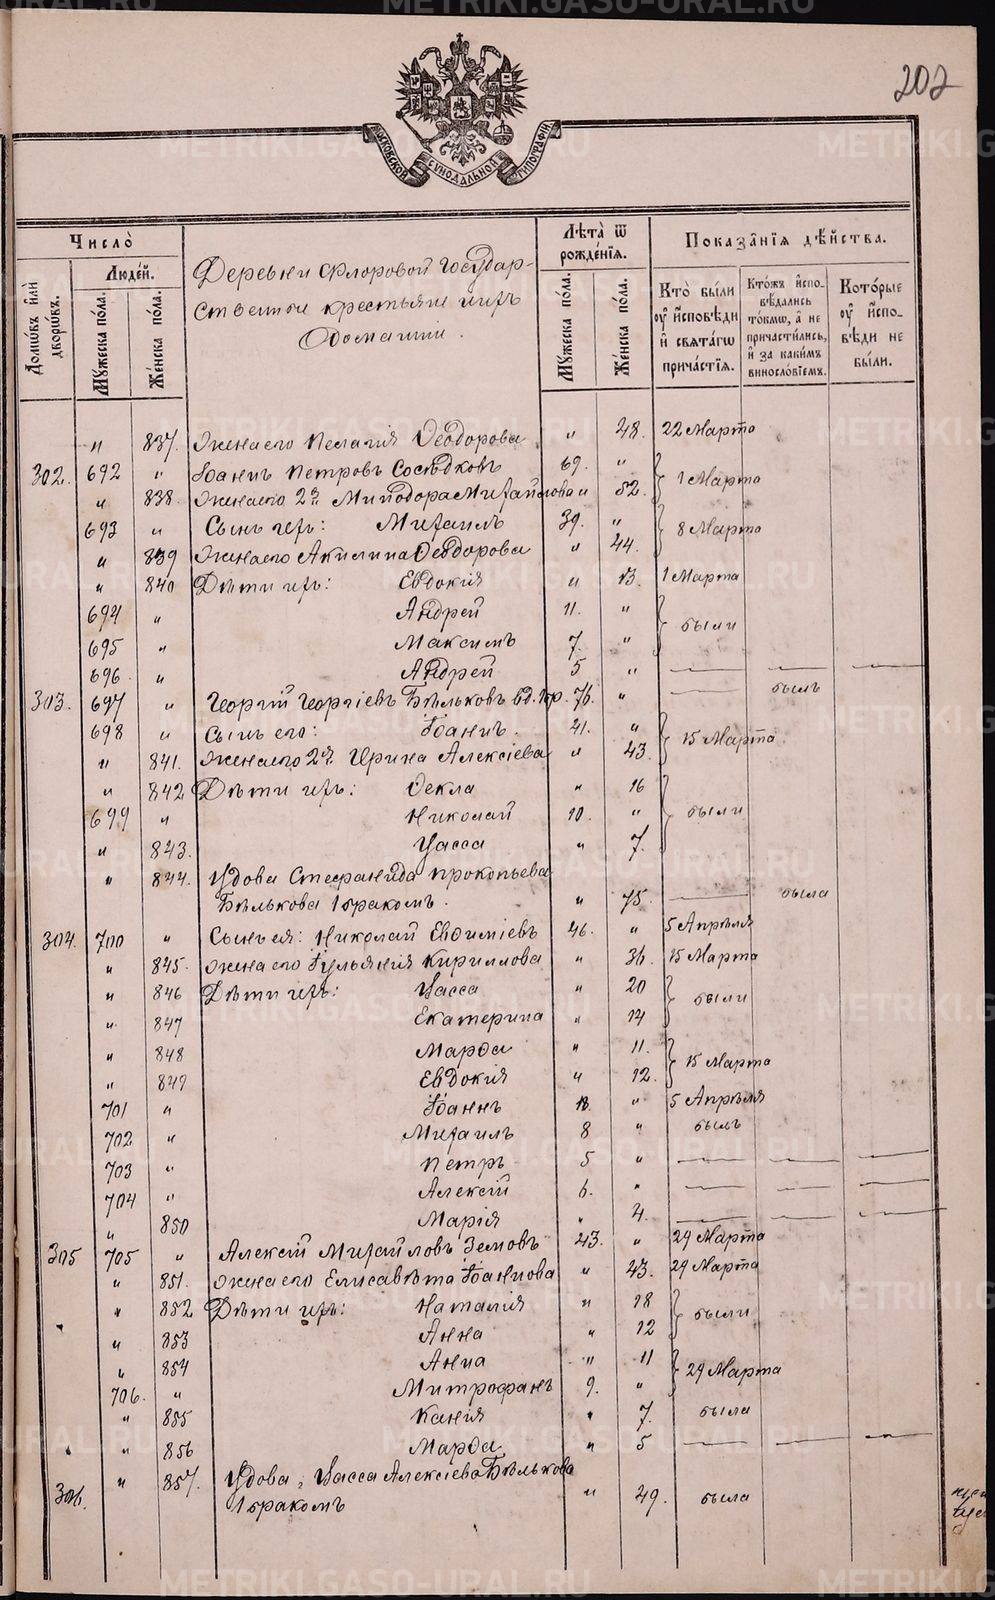 METRIKI.GASO-URAL.RU
202
МОСКОВСКОЙ СѴНОДАЛЬНОЙ ТИПОГРАФІИ
Число̀
Домѡ́въ и҆лѝ дворѡ́въ.
Люде́й.
Мꙋ́жеска по́ла.
Же́нска по́ла.
Деревни Флоровой Государ-
ственные крестьяне и ихъ
домашніи.
Лѣ́та ѿ рожде́нїѧ.
Мꙋ́жеска по́ла.
Же́нска по́ла.
Показа̑нїѧ дѣ́йства.
Кто̀ бы́ли ᲂу҆ и҆́сповѣди и҆ свѧта́гѡ прича́стїѧ.
Кто́жъ и҆спо-вѣ́дались то́кмѡ, а҆ не причасти́лись, и҆ за каки́мъ винослові́емъ.
Кото́рые ᲂу҆ и҆́спо-вѣди не бы́ли.
" 837. Жена его Пелагія Ѳеодорова " 48. 22 Марта
302. 692 " Іоаннъ Петровъ Сосѣдковъ 69. "
" 838. Жена его 2я Минодора Михайлова " 52. 1 Марта
693 " Сынъ ихъ: Михаилъ 39. "
" 839 Жена его Акилина Ѳеодорова " 44. 8 Марта
" 840 Дѣти ихъ: Евдокія " 13. 1 Марта
694 " Андрей 11. "
695 " Максимъ 7. " были
696. " Андрей 5 " — — —
303. 697 " Георгій Георгіевъ Бѣльковъ вд. 1бр. 76. " — былъ
698 " Сынъ его: Іоаннъ. 41. "
" 841. Жена его 2я Ирина Алексіева " 43. 15 Марта
" 842 Дѣти ихъ: Ѳекла " 16
699 " Николай 10. " были
" 843. Васса " 7.
" 844. Вдова Стефанида Прокопьева
Бѣлькова 1 бракомъ. " 75. — была
304. 700 " Сынъ ея: Николай Евѳиміевъ 46. " 5 Апрѣля
" 845. Жена его Іульянія Кириллова " 36. 15 Марта
" 846 Дѣти ихъ: Васса " 20
" 847 Екатерина " 14 были
" 848 Марѳа " 11.
" 849 Евдокія " 12. 15 Марта
701 " Іоаннъ 18. " 5 Апрѣля
702 " Михаилъ 8 " былъ
703 " Петръ 5 " — — —
704 " Алексій 6. " — — —
" 850 Марія " 4. — — —
305 705 " Алексій Михайловъ Земовъ 43. " 29 Марта
" 851. Жена его Елисавѣта Іоаннова " 43. 29 Марта
" 852 Дѣти ихъ: Наталія " 18
" 853 Анна " 12 были
" 854 Анна " 11
706. " Митрофанъ 9. " 29 Марта
" 855 " 7. была
" 856 Марѳа " 5 — — —
306. " 857. Вдова, Васса Алексіева Бѣлькова
1 бракомъ " 49. была